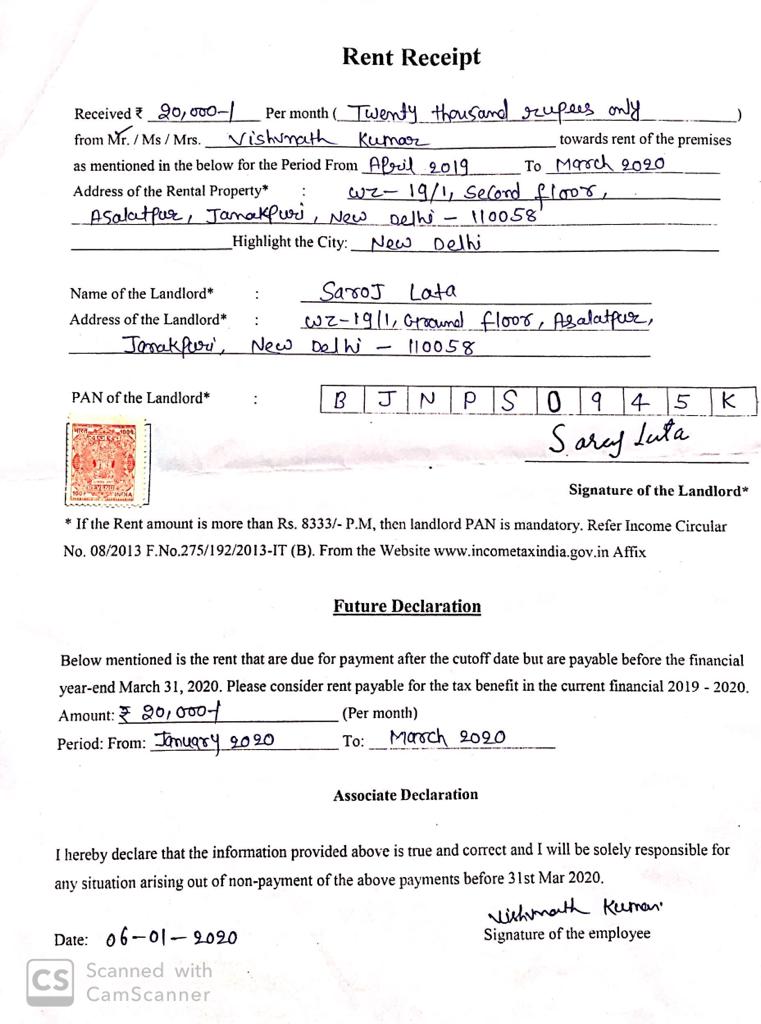 Rent Receipt
Received ₹ 20,000-/ Per month ( Twenty thousand rupees only )
from Mr. / Ms / Mrs. Vishvnath Kumar towards rent of the premises
as mentioned in the below for the Period From April 2019 To March 2020
Address of the Rental Property* : WZ-19/1, Second floor,
Asalatpur, Janakpuri, New Delhi - 110058
Highlight the City: New Delhi
Name of the Landlord* : Saroj Lata
Address of the Landlord* : WZ-19/1, Ground floor, Asalatpur,
Janakpuri, New Delhi - 110058
PAN of the Landlord* : B J N P S 0 9 4 5 K
Saroj Lata
भारत
REVENUE
INDIA
Signature of the Landlord*
* If the Rent amount is more than Rs. 8333/- P.M, then landlord PAN is mandatory. Refer Income Circular
No. 08/2013 F.No.275/192/2013-IT (B). From the Website www.incometaxindia.gov.in Affix
Future Declaration
Below mentioned is the rent that are due for payment after the cutoff date but are payable before the financial
year-end March 31, 2020. Please consider rent payable for the tax benefit in the current financial 2019 - 2020.
Amount: ₹ 20,000-/ (Per month)
Period: From: January 2020 To: March 2020
Associate Declaration
I hereby declare that the information provided above is true and correct and I will be solely responsible for
any situation arising out of non-payment of the above payments before 31st Mar 2020.
Vishvnath Kumar
Date: 06-01-2020
Signature of the employee
CS Scanned with
CamScanner